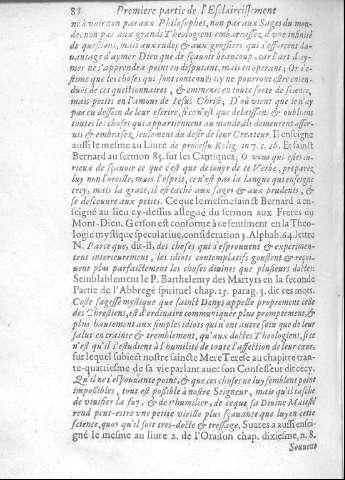 82 Premiere partie de l'Esclaircissement
né à voir non pas aux Philosophes, non pas aux Sages du mon-
de, non pas aux grands Theologiens embarassez d'vne infinité
de questions, mais aux rudes & aux grossiers qui s'efforcent da-
uantage d'aymer Dieu que de sçauoir beaucoup, car l'art d'ay-
mer ne s'apprendra point en disputant, mais en operant; Or i'e-
stime que les choses qui sont contenuës icy ne pourront estre enten-
duës de ces questionnaires, & eminens en toute sorte de science,
mais petits en l'amour de Iesus Christ; D'où vient que ie n'ay
pas eu dessein de leur escrire, si ce n'est que delaissans & oublians
toutes les choses qui appartiennent au monde, ils demeurent asser-
uis & embrasez seulement du desir de leur Createur. Il enseigne
aussi le mesme au Liure de processu Relig. in 7. c. 16. Et sainct
Bernard au sermon 85. sur les Cantiques; O vous qui estes cu-
rieux de sçauoir ce que c'est que de iouyr de ce Verbe, preparez
luy non l'oreille, mais l'esprit, ce n'est pas la langue qui enseigne
cecy, mais la grace, il est caché aux sages & aux prudents, &
se descouure aux petits. Ce que le mesme sainct Bernard a en-
seigné au lieu cy-dessus allegué du sermon aux Freres du
Mont-Dieu. Gerson est conforme à ce sentiment en la Theo-
logie mystique speculatiue, consideration 3. Alphab. 64. lettre
N. Parce que, dit-il, des choses qui s'esprouuent & experimen-
tent interieurement, les idiots contemplatifs goustent & reçoi-
uent plus parfaictement les choses diuines que plusieurs doctes.
Semblablement le P. Barthelemy des Martyrs en la seconde
Partie de l'Abbregé spirituel chap. 13. parag. 3. dit ces mots.
Ceste sagesse mystique que sainct Denys appelle proprement celle
des Chrestiens, est d'ordinaire communiquée plus promptement, &
plus hautement aux simples idiots qui n'ont autre soin que de leur
salut en crainte & tremblement, qu'aux doctes Theologiens, si ce
n'est qu'il s'estudient à l'humilité de toute l'affection de leur cœur,
sur lequel subiect nostre saincte Mere Terese au chapitre tran-
te-quatriesme de sa vie parlant auec son Confesseur dit cecy.
Qu'il ne s'espouuante point, & que ces choses ne luy semblent point
impossibles, tout est possible à nostre Seigneur, mais qu'il tasche
de viuifier la foy, & de s'humilier, de ce que sa Diuine Maiesté
rend peut-estre vne petite vieille plus sçauante que luy en cette
science, quoy qu'il soit tres-docte & tressage. Suares a aussi ensei-
gné le mesme au liure 2. de l'Oraison chap. dixiesme, n. 8.
Souuent